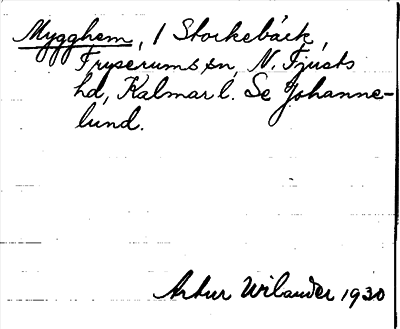 Mygghem, 1 Storkebäck,
Fryserums sn, N. Tjusts
hd, Kalmar l. Se Johanne-
lund.
Artur Wilander 1930